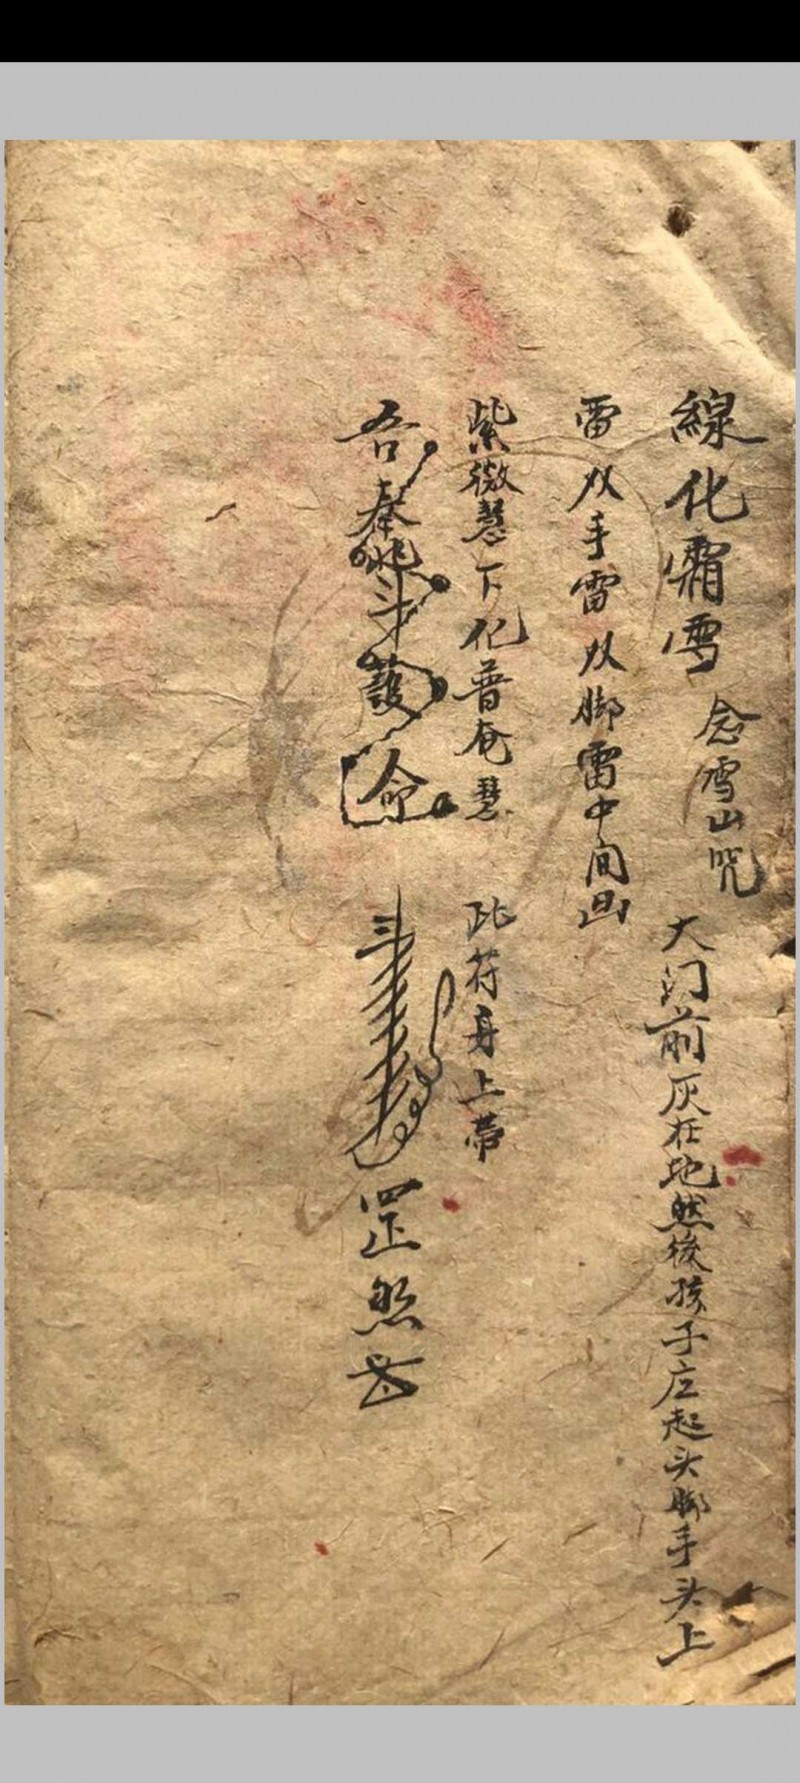 線化霜雪 念雪山咒 大门前灰在地然後孩子应起头脚手头上
雷双手雷双脚雷中间画
紫微慧下化普奄慧 此符身上帶
吾奉 斗 命 罡煞